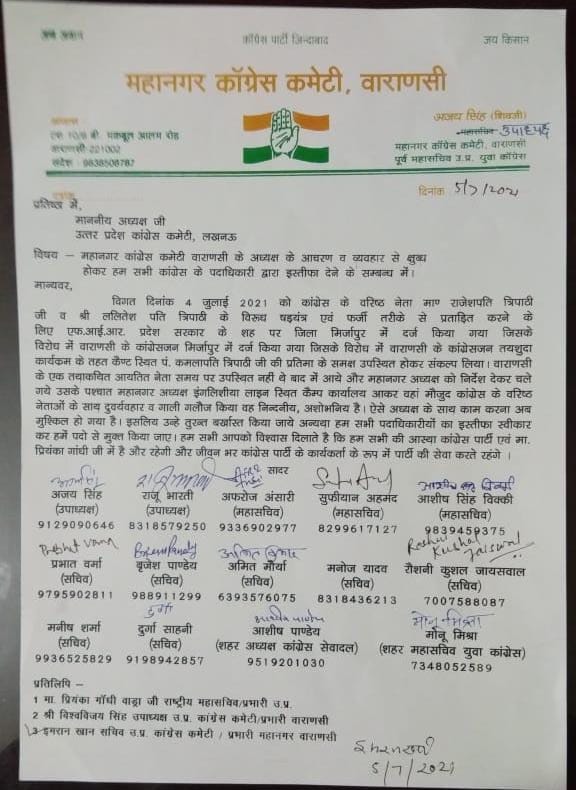 कॉंग्रेस पार्टी ज़िन्दाबाद
जय किसान
महानगर कॉंग्रेस कमेटी, वाराणसी
अजय सिंह (शिवजी)
महासचिव उपाध्यक्ष
एस 10/9 बी. मकबूल आलम रोड
महानगर कॉंग्रेस कमेटी, वाराणसी
वाराणसी-221002
पूर्व महासचिव उ.प्र. युवा कॉंग्रेस
दिनांक 5/7/2021
प्रतिष्ठ में,
माननीय अध्यक्ष जी
उत्तर प्रदेश कांग्रेस कमेटी, लखनऊ
विषय – महानगर कांग्रेस कमेटी वाराणसी के अध्यक्ष के आचरण व व्यवहार से क्षुब्ध
होकर हम सभी कांग्रेस के पदाधिकारी द्वारा इस्तीफा देने के सम्बन्ध में।
मान्यवर,
विगत दिनांक 4 जुलाई 2021 को कांग्रेस के वरिष्ठ नेता माण राजेशपति त्रिपाठी
जी व श्री ललितेश पति त्रिपाठी के विरूध षड्यंत्र एवं फर्जी तरीके से प्रताड़ित करने के
लिए एफ.आई.आर. प्रदेश सरकार के शह पर जिला मिर्जापुर में दर्ज किया गया जिसके
विरोध में वाराणसी के कांग्रेसजन मिर्जापुर में दर्ज किया गया जिसके विरोध में वाराणसी के कांग्रेसजन तयशुदा
कार्यकम के तहत कैण्ट स्थित पं. कमलापति त्रिपाठी जी की प्रतिमा के समक्ष उपस्थित होकर संकल्प लिया। वाराणसी
के एक तथाकथित आयतित नेता समय पर उपस्थित नही वे बाद में आये और महानगर अध्यक्ष को निर्देश देकर चले
गये उसके पश्चात महानगर अध्यक्ष इंगलिशीया लाइन स्थित कैम्प कार्यालय आकर वहां मौजूद कांग्रेस के वरिष्ठ
नेताओं के साथ दुर्व्यवहार व गाली गलौज किया वह निन्दनीय, अशोभनिय है। ऐसे अध्यक्ष के साथ काम करना अब
मुश्किल हो गया है। इसलिय उन्हे तुरन्त बर्खास्त किया जाये अन्यथा हम सभी पदाधिकारीयों का इस्तीफा स्वीकार
कर हमें पदो से मुक्त किया जाए। हम सभी आपको विश्वास दिलाते है कि हम सभी की आस्था कांग्रेस पार्टी एवं मा.
प्रियंका गांधी जी में है और रहेगी और जीवन भर कांग्रेस पार्टी के कार्यकर्ता के रूप में पार्टी की सेवा करते रहंगे ।
सादर
अजय सिंह राजू भारती अफरोज अंसारी सुफीयान अहमद आशीष सिंह विक्की
(उपाध्यक्ष) (उपाध्यक्ष) (महासचिव) (महासचिव) (महासचिव)
9129090646 8318579250 9336902977 8299617127 9839459375
Prabhat Verma Brijesh Pandey Roshni Kushal Jaiswal
प्रभात वर्मा बृजेश पाण्डेय अमित मौर्या मनोज यादव रौशनी कुशल जायसवाल
(सचिव) (सचिव) (सचिव) (सचिव) (सचिव)
9795902811 988911299 6393576075 8318436213 7007588087
दुर्गा आशीष पाण्डेय मोनू मिश्रा
मनीष शर्मा दुर्गा साहनी आशीष पाण्डेय मोनू मिश्रा
(सचिव) (सचिव) (शहर अध्यक्ष कांग्रेस सेवादल) (शहर महासचिव युवा कांग्रेस)
9936525829 9198942857 9519201030 7348052589
प्रतिलिपि –
1 मा. प्रियंका गॉंधी वाड्रा जी राष्ट्रीय महासचिव/प्रभारी उ.प्र.
2 श्री विश्वविजय सिंह उपाध्यक्ष उ.प्र. कांग्रेस कमेटी/प्रभारी वाराणसी
3 इमरान खान सचिव उ.प्र. कांग्रेस कमेटी / प्रभारी महानगर वाराणसी
5/7/2021